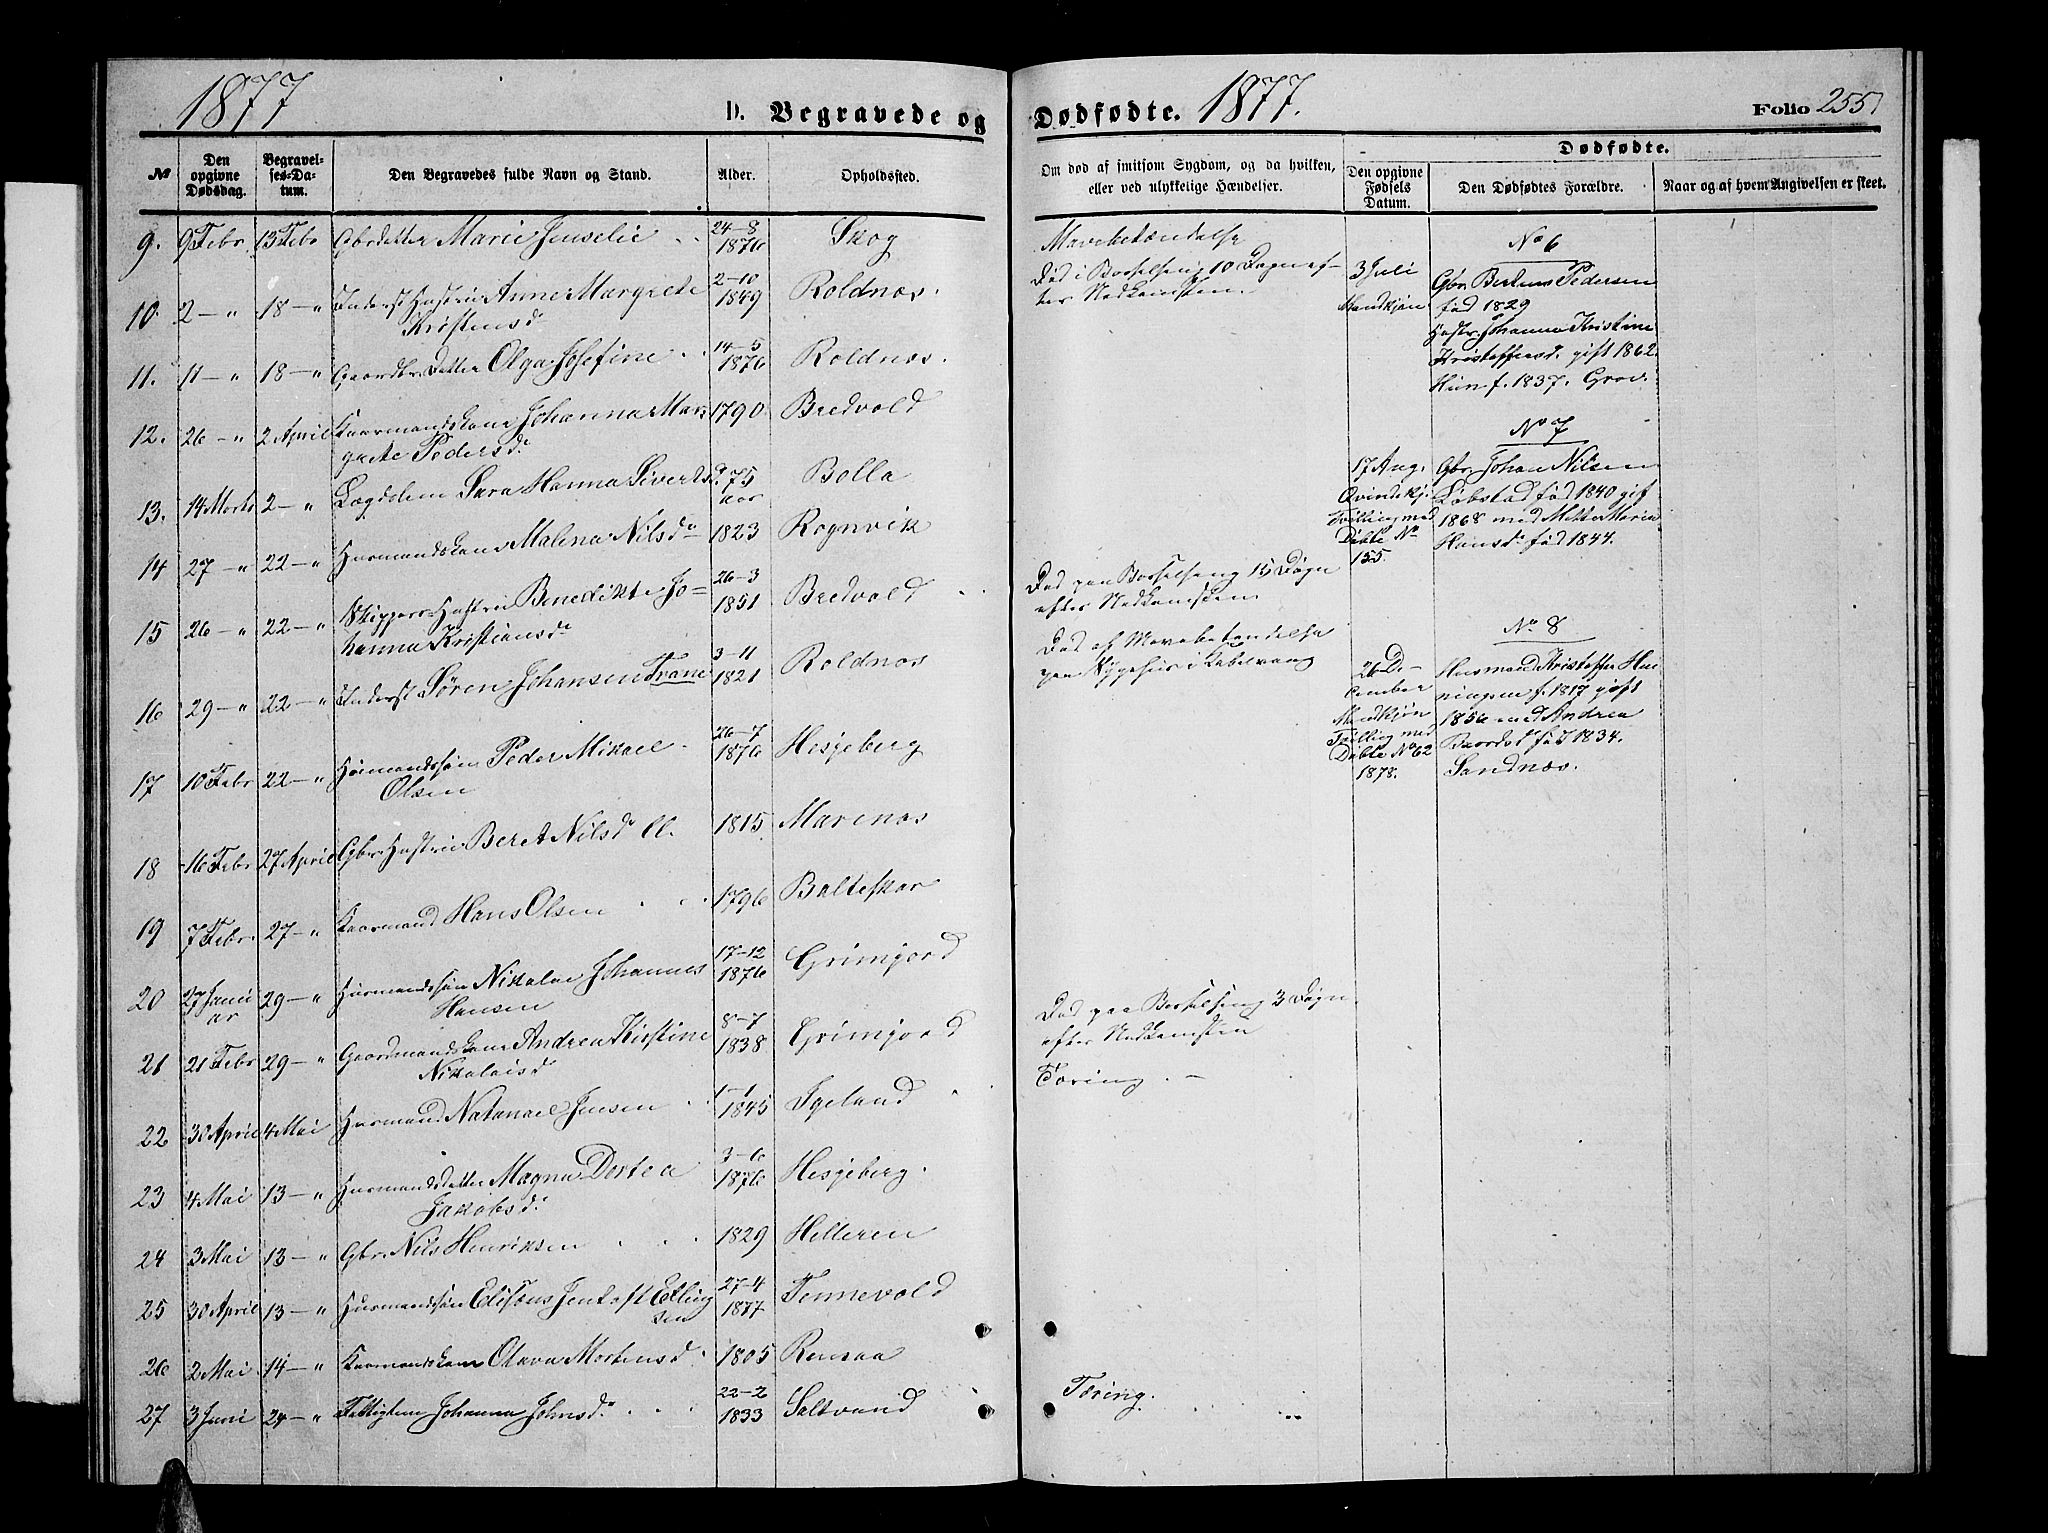 1877
D. Begravede og
Dødfødte. 1877.
Folio 255
№
Den opgivne Dødsdag.
Begravelses-Datum.
Den Begravedes fulde Navn og Stand.
Alder.
Opholdssted.
Om død af smitsom Sygdom, og da hvilken,
eller ved ulykkelige Hændelser.
Dødfødte.
Den opgivne Fødsels Datum.
Den Dødfødtes Forældre.
Naar og af hvem Angivelsen er skeet.
9. 9 Febr. 13 Febr Gbrdatter Marie Jenselie 24-8 1876 Skog
10. 2 — " 18 — " Inderst Hustru Anne Margrete 2-10 1849 Roldnæs.
Kristensd
11. 11 — " 18 — " Gaardbr Datter Olga Josefine 14-5 1876 Roldnæs.
12. 26 — " 2 April Kaarmandskone Johanna Mar 1790 Bredvold
grete Pedersd.
13. 14 Marts 2 — " Lægdslem Sara Hanna Sivertsd. 75 aar Bolla
14 27 — " 22 — " Husmandskone Malena Nilsd 1823 Rognvik
15 26 — " 22 — " Skippers Hustru Benedikte Jo= 26-3 1851 Bredvold
hanna Kristiansd
16 29 — " 22 — " Inderst Søren Johansen Trane 3-11 1821 Roldnæs
17 10 Febr 22 — " Husmandssøn Peder Mikael 26-7 1876 Hesjeberg
Olsen
18 16 Febr 27 April Gbr Hustru Beret Nilsd 1815 Marenæs
19 7 Febr. 27 — " Kaarmand Hans Olsen 1796 Balteskar
20 27 Janu ar 29 — " Husmandssøn Nikolai Johannes 17-12 1876 Grimjord
Hansen
21 21 Febr 29 — " Gaardmandskone Andrea Kirstine 8-7 1838 Grimjord
Nikolaisd
22 30 April 4 Mai Husmand Natanael Jensen 1-1 1845 Igeland
23 4 Mai 13 — " Husmandsdatter Magna Dortea 3-6 1876 Hesjeberg.
Jakobsd.
24 3 Mai 13 — " Gbr. Nils Henriksen 1829 Helleren
25 30 April 13 — " Husmandssøn Elisæus Jentoft Elling 27-4 1877 Tennevold
sen
26 2 Mai 14 — " Kaarmandskone Olava Mortensd. 1805 Rensaa
27 3 Juni 24 — " Fattiglem Johanna Johnsd. 22-2 1833 Saltvand
Mavebetændelse
Død i Barselseng 10 Dage ef-
ter Nedkomsten.
Død paa Barselseng 15 Døgn
efter Nedkomsten
Død af Mavebetændelse
paa Sygehus i Kabelvaag
Død paa Barselseng 3 Døgn
efter Nedkomsten
Tæring. —
Tæring.
No 6
3 Juli
Mandkjøn
Gbr. Berteus Pedersen
fød 1829
Hustr. Johanna Kristine
Kristoffersd. gift 1862.
Hun f. 1837. Grov.
No 7
17 Aug.
Qvindekj.
Tvilling med
Døbte No
155.
Gbr. Johan Nilsen
Løbstad fød 1840 gift
1868 med Mette Maria
Hansd. fød 1844.
No 8
26 De-
cember
Mandkjøn
Tvilling med
Døbte No 62
1878.
Husmand Kristoffer Hen
ningsen f. 1817 gift
1856 med Andrea
Baardsd. fød 1834.
Sandnæs.